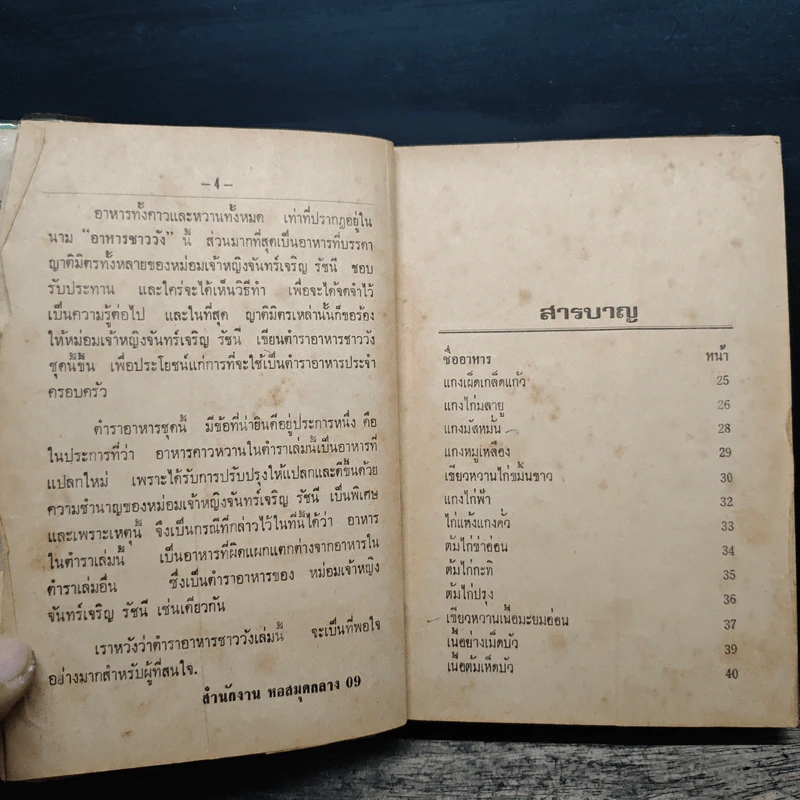 — 4 —
อาหารทั้งคาวและหวานทั้งหมด เท่าที่ปรากฏอยู่ใน
นาม “อาหารชาววัง” นี้ ส่วนมากที่สุดเป็นอาหารที่บรรดา
ญาติมิตรทั้งหลายของหม่อมเจ้าหญิงจันทร์เจริญ รัชนี ชอบ
รับประทาน และใคร่จะได้เห็นวิธีทำ เพื่อจะได้จดจำไว้
เป็นความรู้ต่อไป และในที่สุด ญาติมิตรเหล่านั้นก็ขอร้อง
ให้หม่อมเจ้าหญิงจันทร์เจริญ รัชนี เขียนตำราอาหารชาววัง
ชุดนี้ขึ้น เพื่อประโยชน์แก่การที่จะใช้เป็นตำราอาหารประจำ
ครอบครัว
ตำราอาหารชุดนี้ มีข้อที่น่ายินดีอยู่ประการหนึ่ง คือ
ในประการที่ว่า อาหารคาวหวานในตำราเล่มนี้เป็นอาหารที่
แปลกใหม่ เพราะได้รับการปรับปรุงให้แปลกและดีขึ้นด้วย
ความชำนาญของหม่อมเจ้าหญิงจันทร์เจริญ รัชนี เป็นพิเศษ
และเพราะเหตุนี้ จึงเป็นกรณีที่กล่าวไว้ในที่นี้ได้ว่า อาหาร
ในตำราเล่มนี้ เป็นอาหารที่ผิดแผกแตกต่างจากอาหารใน
ตำราเล่มอื่น ซึ่งเป็นตำราอาหารของ หม่อมเจ้าหญิง
จันทร์เจริญ รัชนี เช่นเดียวกัน
เราหวังว่าตำราอาหารชาววังเล่มนี้ จะเป็นที่พอใจ
อย่างมากสำหรับผู้ที่สนใจ.
สำนักงาน หอสมุดกลาง 09
สารบาญ
ชื่ออาหาร หน้า
แกงเผ็ดเกล็ดแก้ว 25
แกงไก่มลายู 26
แกงมัสหมั่น 28
แกงหมูเหลือง 29
เขียวหวานไก่ขมิ้นขาว 30
แกงไก่ฟ้า 32
ไก่แห้งแกงคั่ว 33
ต้มไก่ข่าอ่อน 34
ต้มไก่กะทิ 35
ต้มไก่ปรุง 36
เขียวหวานเนื้อมะยมอ่อน 37
เนื้อย่างเม็ดบัว 39
เนื้อต้มเห็ดบัว 40